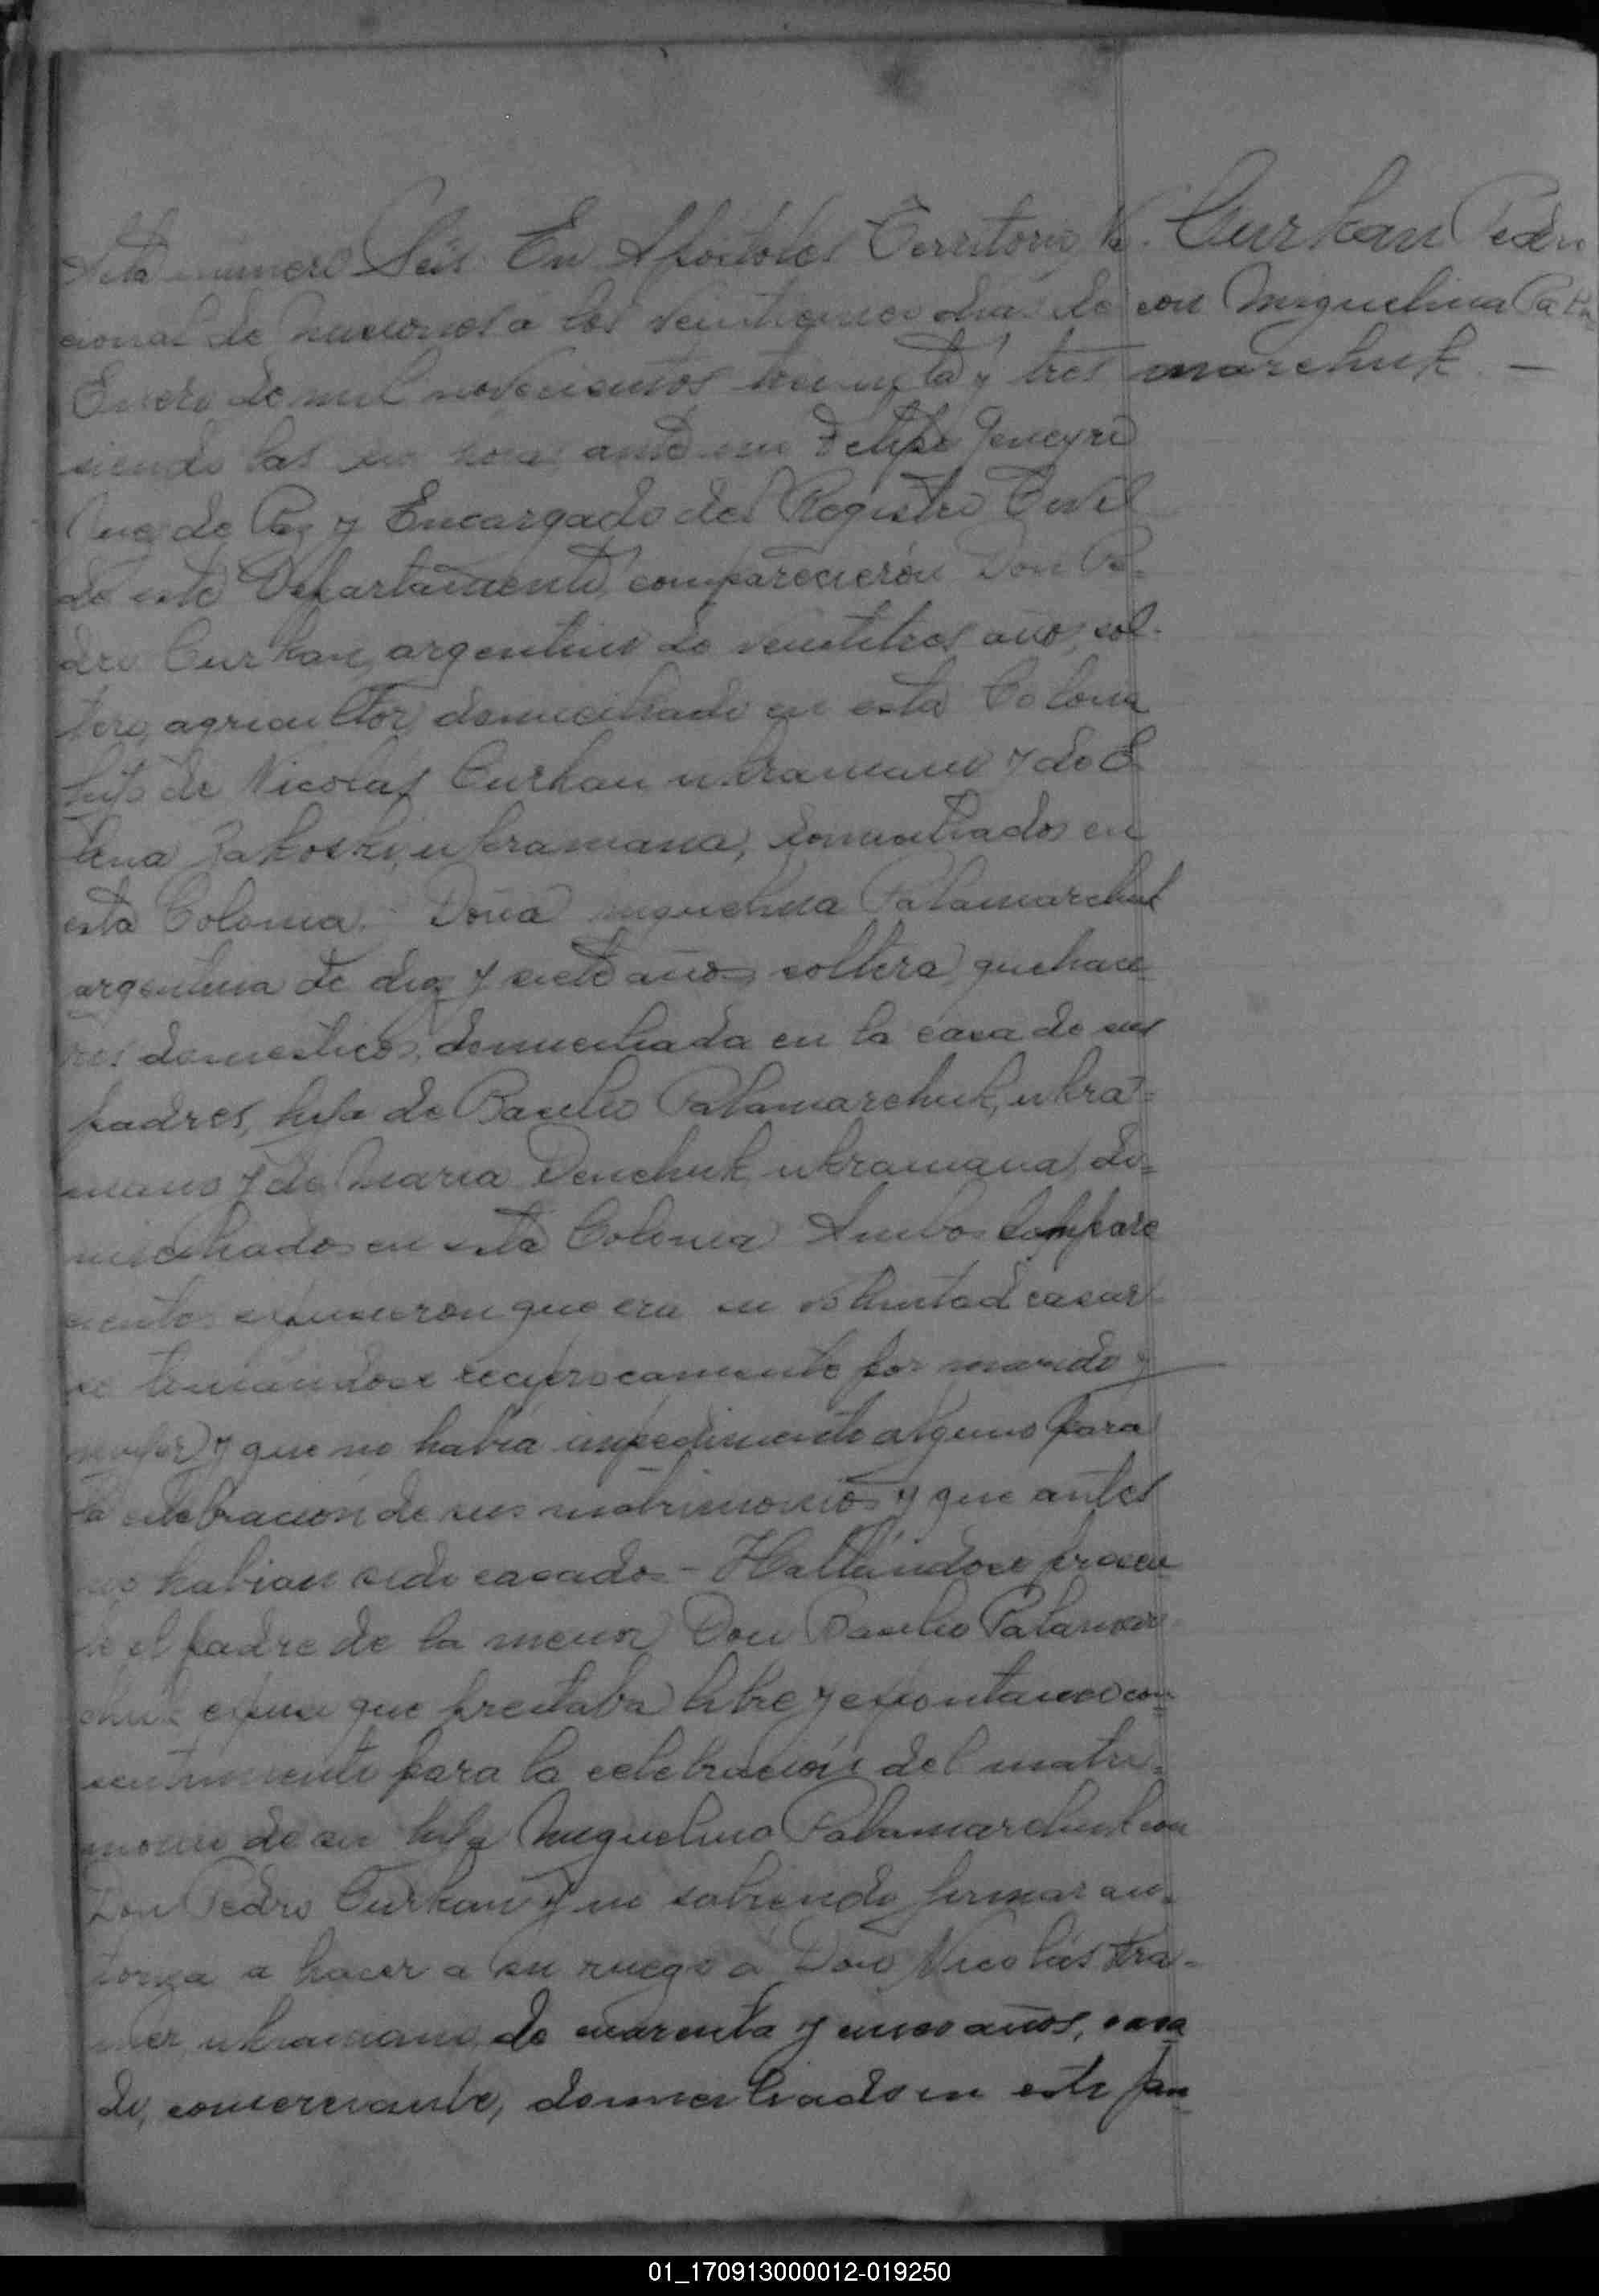 Acta número Seis En Apóstoles Territorio Na
cional de Misiones a los veinticinco dias de
Enero de mil novecientos treinta y tres
siendo las horas ante mi Felipe
Juez de Paz y Encargado del Registro Civil
de este Departamento, comparecieron Don Pe-
dro Curkan, argentino de veintitres años, sol-
tero, agricultor, domiciliado en esta Colonia
hijo de Nicolas Curkan ukraniano y de E
lena ukraniana, domiciliados en
esta Colonia. Doña Miguelina Palamarchuk
argentina de diez y siete años soltera, quehace
res domesticos, domiciliada en la casa de sus
padres, hija de Basilio Palamarchuk, ukra-
niano y de Maria Denchuk ukraniana, do-
miciliados en esta Colonia Ambos compare
cientes expusieron que era su voluntad casar
se tomándose reciprocamente por marido y
mujer y que no habia impedimento alguno para
la celebracion de sus matrimonios y que antes
no habian sido casados - Hallándose presen
te el padre de la menor Don Basilio Palamar
chuk expuso que prestaba libre y espontaneo con-
sentimiento para la celebración del matri-
monio de su hija Miguelina Palamarchuk con
Don Pedro Curkan y no sabiendo firmar au-
toriza a hacer a su ruego a Don Nicolás
ukraniano, de cuarenta y cinco años, casa
do, comerciante, domiciliado en este
Curkan Pedro
con Miguelina Pala
marchuk. —
01_170913000012-019250